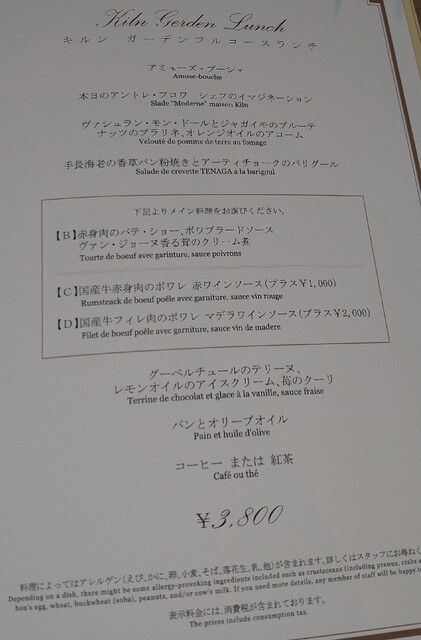 Kiln Gorden Lunch
キルン ガーデンフルコースランチ
アミューズ・ブーシャ
Amuse-bouche
本日のアントレ・フロワ シェフのイマジネーション
Slade "Moderne" maison Kiln
ヴァシュラン・モン・ドールとジャガイモのブルーテ
ナッツのプラリネ、オレンジオイルのアコーム
Velouté de pomme de terre au fomage
手長海老の香草パン粉焼きとアーティチョークのバリグール
Salade de crevette TENAGA a la barigoul
下記よりメイン料理をお選びください。
【B】赤身肉のパテ・ショー、ポワブラードソース
ヴァン・ジョーヌ香る茸のクリーム煮
Tourte de boeuf avec garinture, sauce poivrons
【C】国産牛赤身肉のポワレ 赤ワインソース(プラス¥1,000)
Rumsteack de boeuf poêle avec garniture, sauce vin rouge
【D】国産牛フィレ肉のポワレ マデラワインソース(プラス¥2,000)
Filet de boeuf poêle avec garniture, sauce vin de madere
クーベルチュールのテリーヌ、
レモンオイルのアイスクリーム、苺のクーリ
Terrine de chocolat et glace à la vanille, sauce fraise
パンとオリーブオイル
Pain et huile d'olive
コーヒー または 紅茶
Café ou thé
¥3,800
料理によってはアレルゲン(えび、かに、卵、小麦、そば、落花生、乳、他)が含まれます。詳しくはスタッフにお尋ねく
Depending on a dish, there might be some allergy-provoking ingredients included such as crustaceans (including prawns, crabs a
hen's egg, wheat, buckwheat (soba), peanuts, and/or cow's milk. If you need more details, any member of staff will be happy t
表示料金には、消費税が含まれております。
The prices include consumption tax.